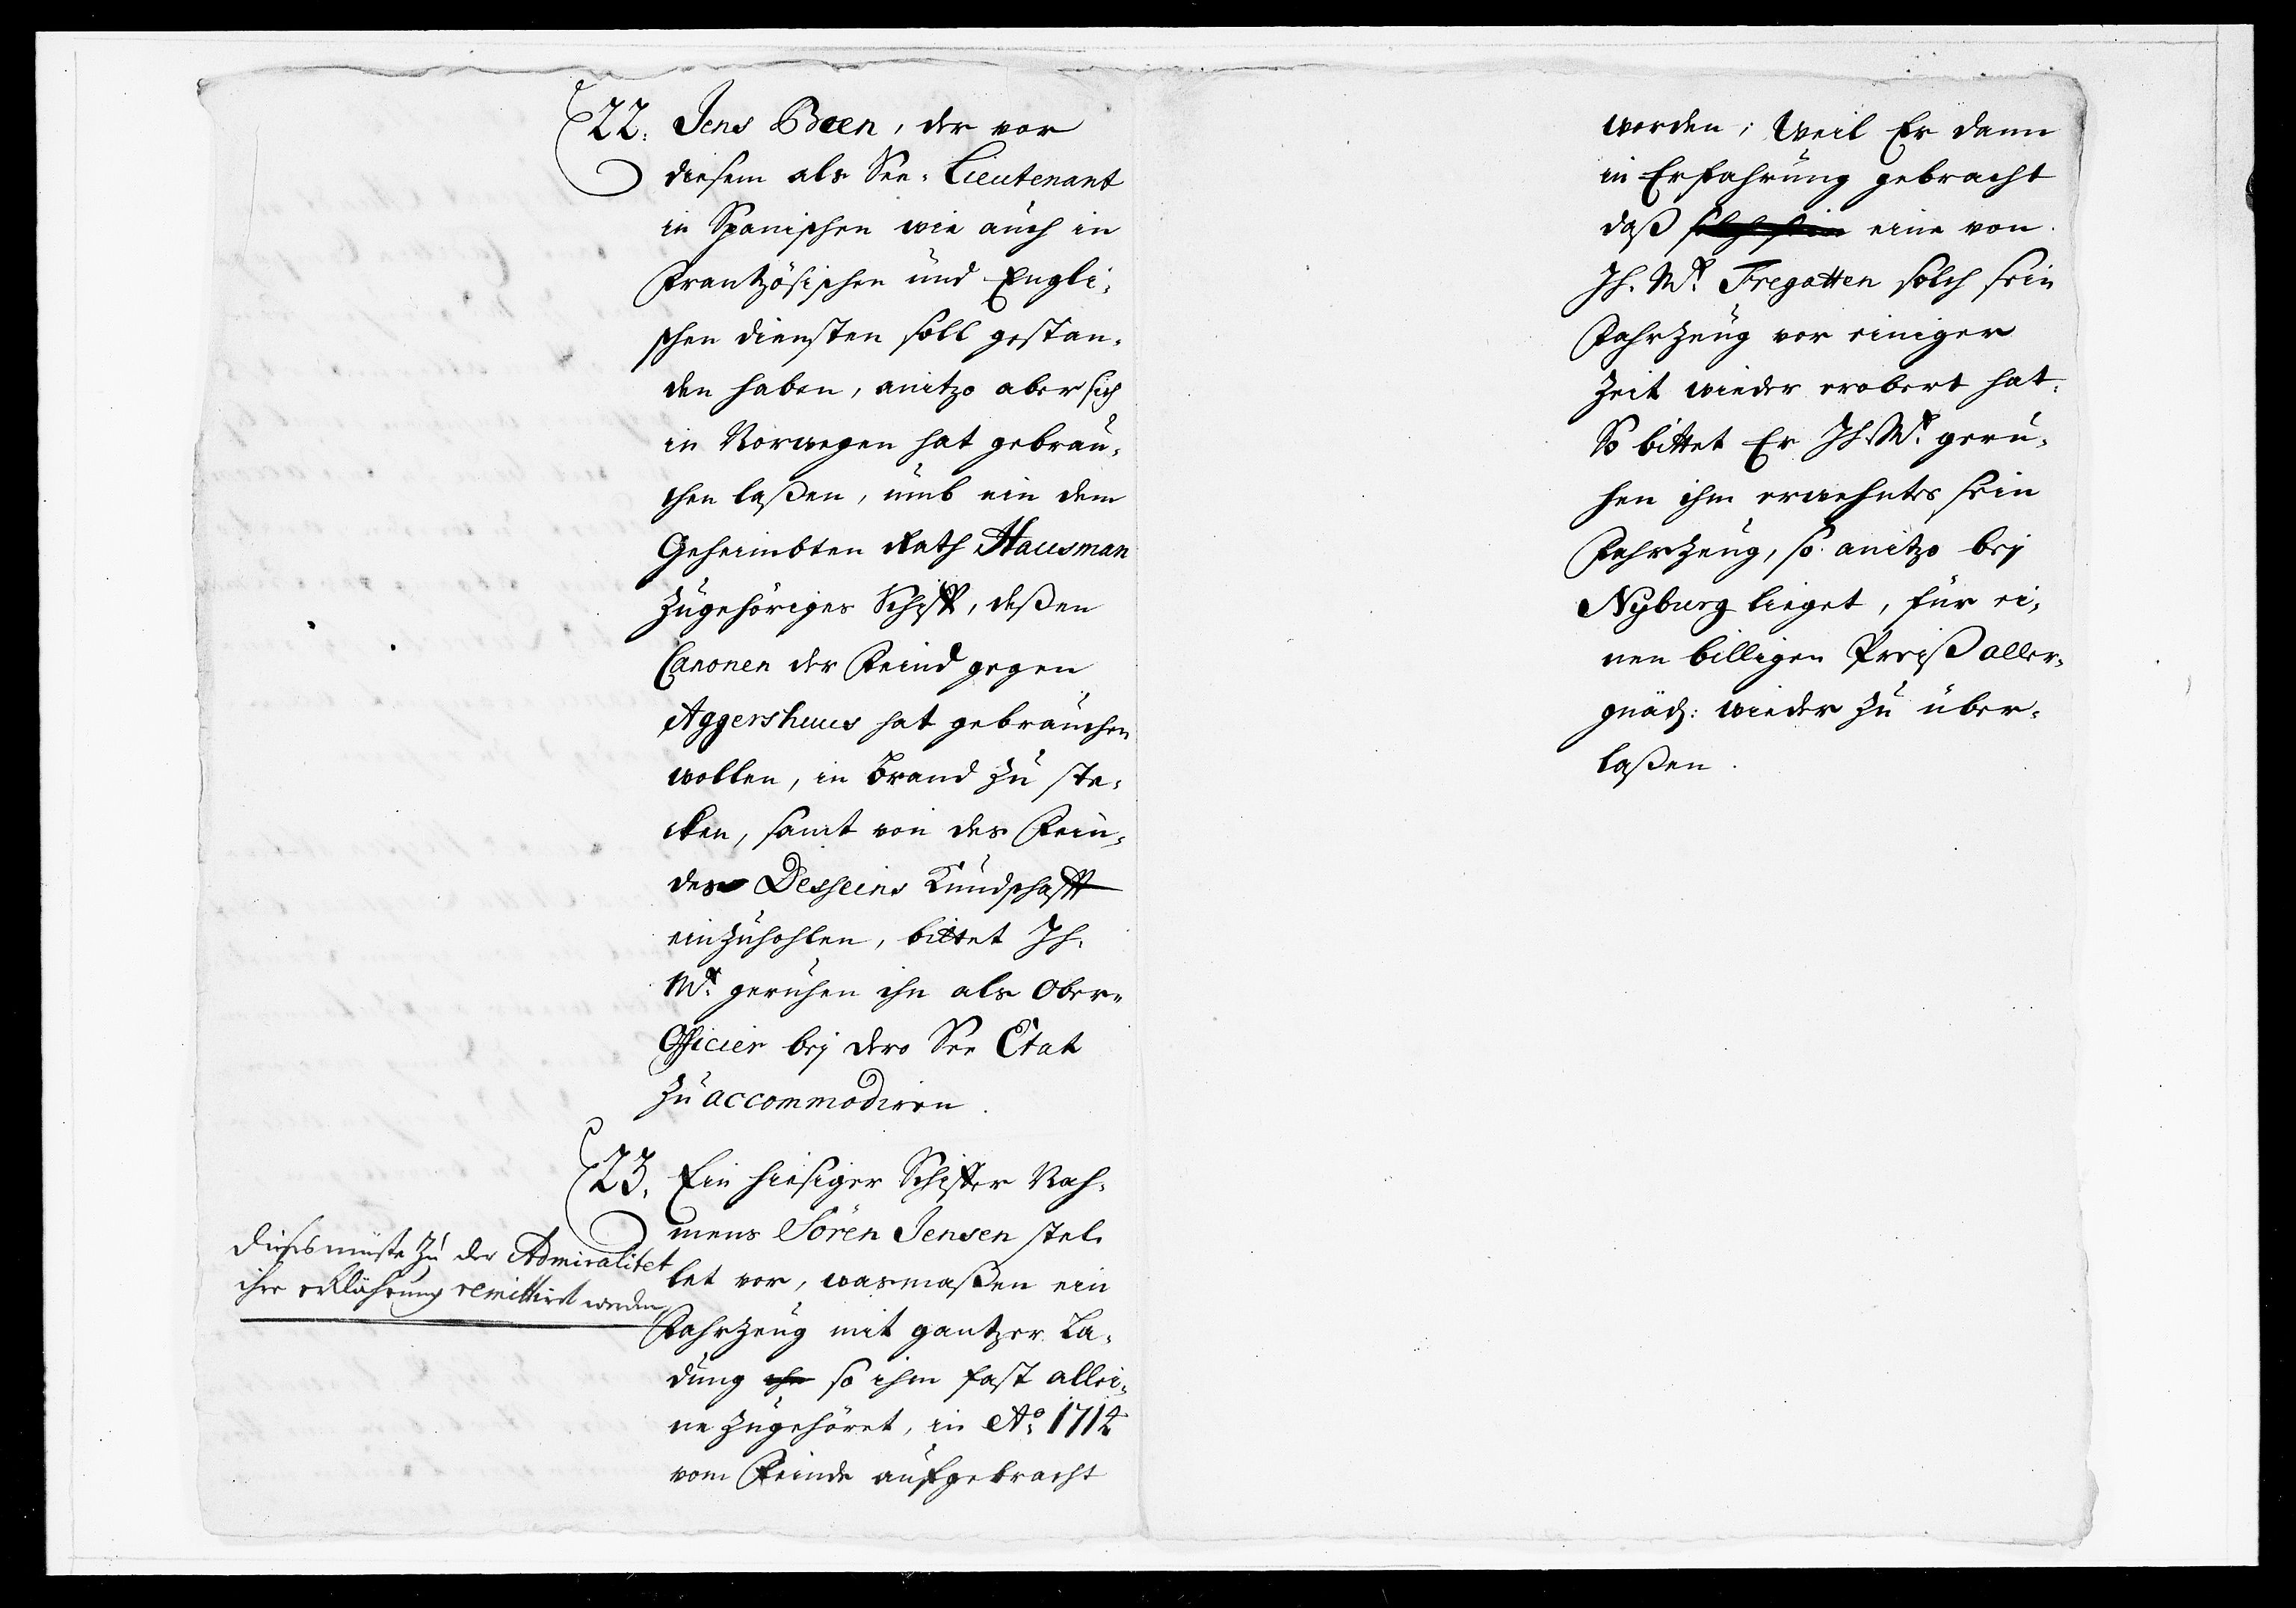 22. Jens Been, der vor
diesem als See-Lieutenant
in Spanischen wie auch in
Frantzösischen und Engli-
schen diensten soll gestan-
den haben, anitzo aber sich
in Norwegen hat gebrau-
chen laßen, umb ein dem
Geheimbten Rath Hausman
zugehöriges Schiff, deßen
Canonen der Feind gegen
Aggershuus hat gebrauchen
wollen, in Brand zu ste-
cken, samt von des Fein-
des Desseins Kundschafft
einzuhohlen, bittet Ih.
Mt. geruhen ihn als Ober-
Officier bey dero See Etat
zu accommodiren.
23. Ein hiesiger Schiffer Nah-
mens Sören Jensen stel-
let vor, wasmaßen ein
Fahrzeug mit gantzer La-
dung ihr so ihm fast allei-
ne zugehöret, in Ao. 1712
vom Feinde aufgebracht
dieses müste zu der Admiralitet
ihre erklährung remittirt werden
worden; Weil Er dann
in Erfahrung gebracht
daß solch sein eine von
Ih. Mt. Fregatten solch sein
Fahrzeug vor einiger
Zeit wieder erobert hat.
So bittet Er Ih. Mt. geru-
hen ihm erwehntes sein
Fahrzeug, so anitzo bey
Nyburg lieget, für ei-
nen billigen Preiß aller-
gnäd: wieder zu über-
laßen.